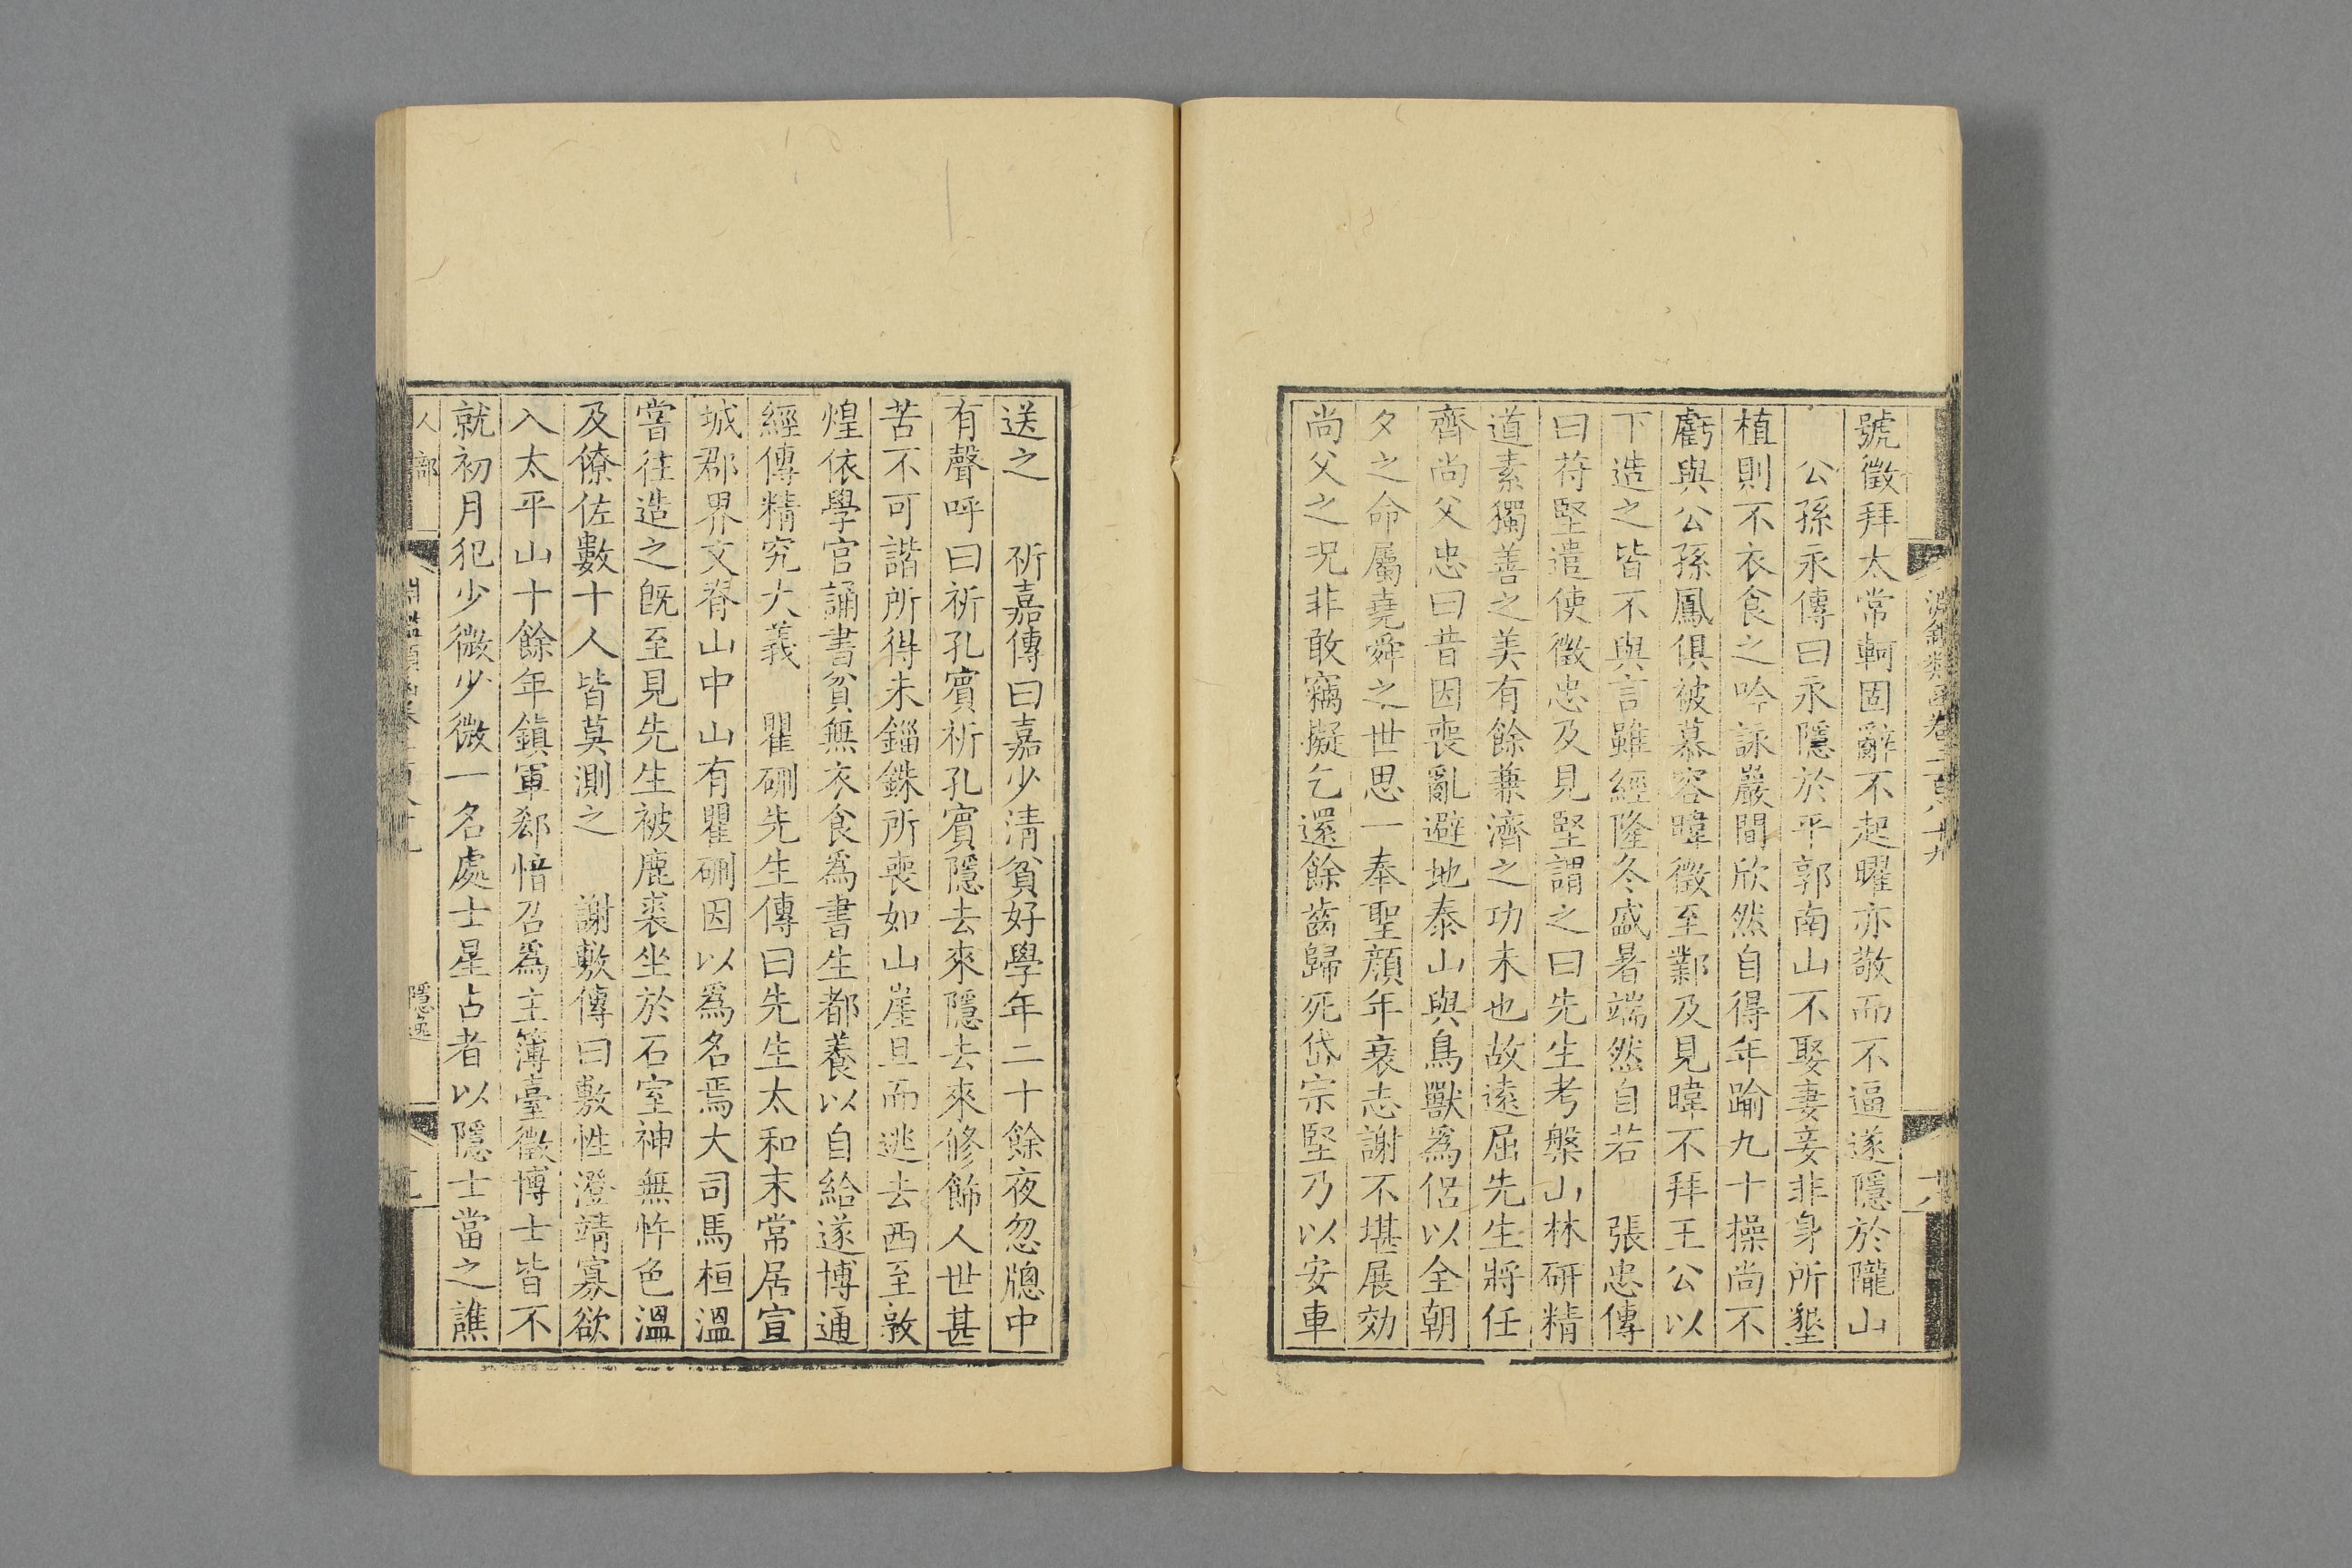 淵鑑類函卷二百八十九
十八
號徵拜太常軻固辭不起曜亦敬而不逼遂隱於隴山
公孫永傳曰永隱於平郭南山不娶妻妾非身所墾
植則不衣食之吟詠巖間欣然自得年踰九十操尚不
虧與公孫鳳俱被慕容暐徵至鄴及見暐不拜王公以
下造之皆不與言雖經隆冬盛暑端然自若　張忠傳
曰苻堅遣使徵忠及見堅謂之曰先生考槃山林研精
道素獨善之美有餘兼濟之功未也故遠屈先生將任
齊尚父忠曰昔因喪亂避地泰山與鳥獸爲侶以全朝
夕之命屬堯舜之世思一奉聖顔年衰志謝不堪展効
尚父之況非敢竊擬乞還餘齒歸死岱宗堅乃以安車
送之　祈嘉傳曰嘉少清貧好學年二十餘夜忽牕中
有聲呼曰祈孔賓祈孔賓隱去來隱去來修飾人世甚
苦不可諧所得未錙銖所喪如山崖旦而逃去西至敦
煌依學宮誦書貧無衣食爲書生都養以自給遂博通
經傳精究大義　瞿硎先生傳曰先生太和末常居宣
城郡界文脊山中山有瞿硎因以爲名焉大司馬桓溫
嘗往造之旣至見先生被鹿裘坐於石室神無忤色溫
及僚佐數十人皆莫測之　謝敷傳曰敷性澄靖寡欲
入太平山十餘年鎮軍郄愔召爲主簿臺徵博士皆不
就初月犯少微少微一名處士星占者以隱士當之譙
人部
隱逸